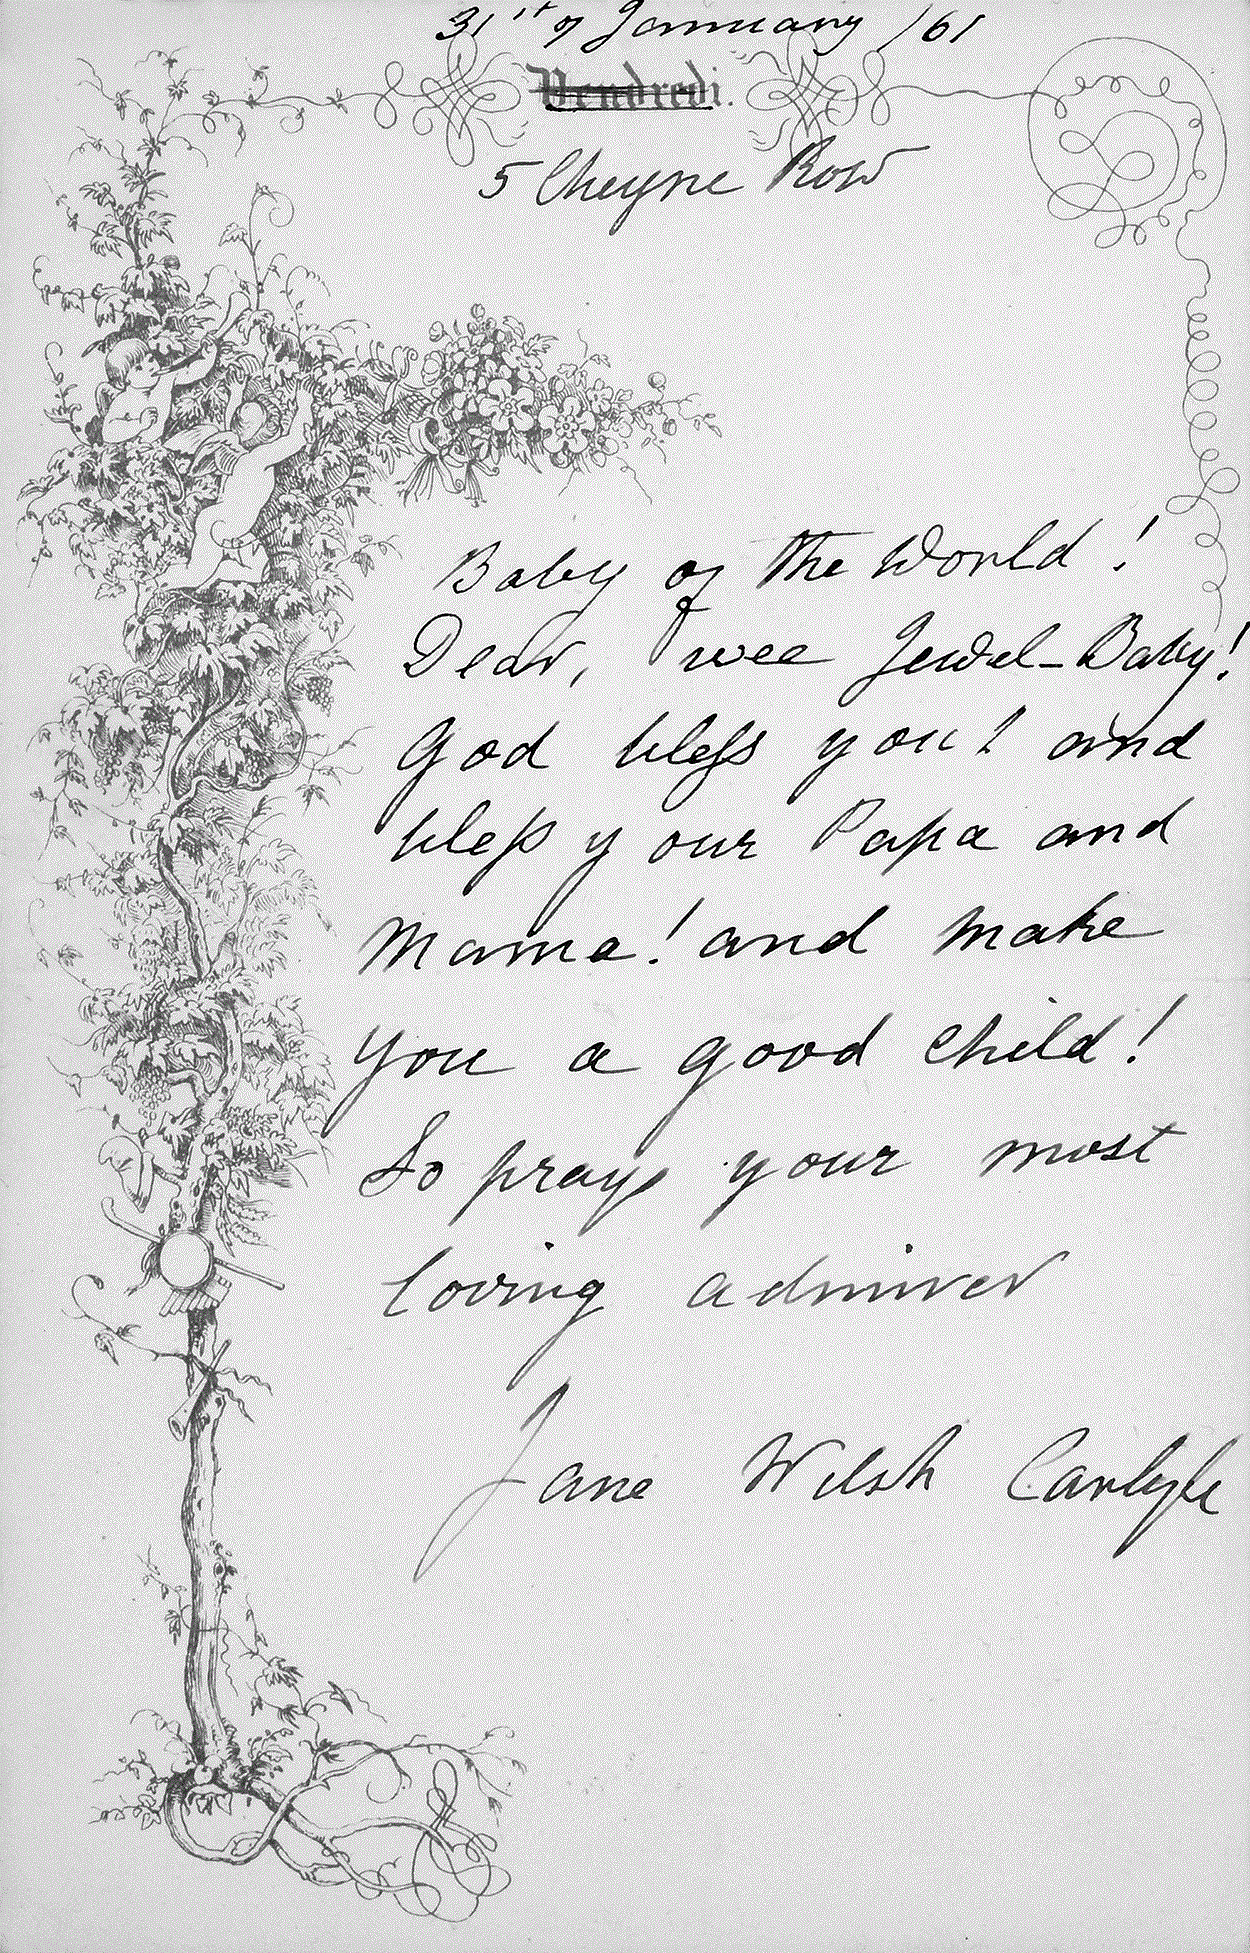 31st of January /61
Vendredi.
5 Cheyne Row
Baby of the World!
Dear, wee Jewel-Baby!
God bless you! and
bless your Papa and
Mama! and make
you a good child!
So prays your most
loving admirer
Jane Welsh Carlyle